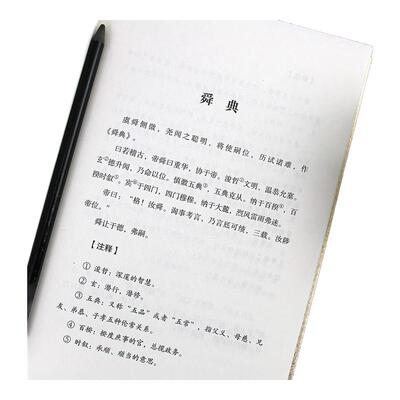 舜 典
虞舜侧微，尧闻之聪明，将使嗣位，历试诸难，作
《舜典》。
曰若稽古，帝舜曰重华，协于帝。浚哲①文明，温恭允塞。
玄②德升闻，乃命以位。慎徽五典③，五典克从。纳于百揆④，百
揆时叙⑤。宾⑥于四门，四门穆穆。纳于大麓，烈风雷雨弗迷。
帝曰：“格！汝舜。询事考言，乃言厎可绩，三载。汝陟
帝位。”
舜让于德，弗嗣。
【注释】
① 浚哲：深邃的智慧。
② 玄：潜行，潜修。
③ 五典：又称“五品”或者“五常”，指父义、母慈、兄
友、弟恭、子孝五种伦常关系。
④ 百揆：揆度庶事的官，总揽政务。
⑤ 时叙：承顺、顺当的意思。